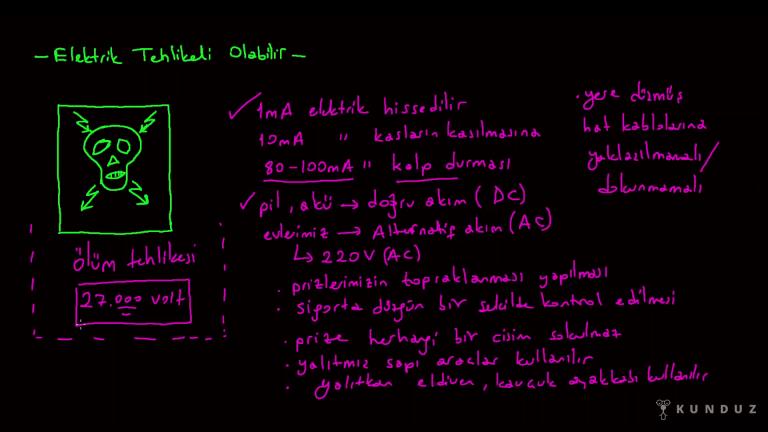 - Elektrik Tehlikeli Olabilir -
✓ 1mA elektrik hissedilir
10mA " kasların kasılmasına
80-100mA " kalp durması
• yere düşmüş
hat kablolarına
yaklaşılmamalı/
dokunmamalı
✓ pil, akü → doğru akım (DC)
evlerimiz → Alternatif akım (AC)
↳ 220V (AC)
ölüm tehlikesi
27.000 volt
• prizlerimizin topraklanması yapılması
• sigorta düzgün bir şekilde kontrol edilmesi
• prize herhangi bir cisim sokulmaz
• yalıtmız sapı araçlar kullanılır
• yalıtkan eldiven, kauçuk ayakkabı kullanılır
KUNDUZ